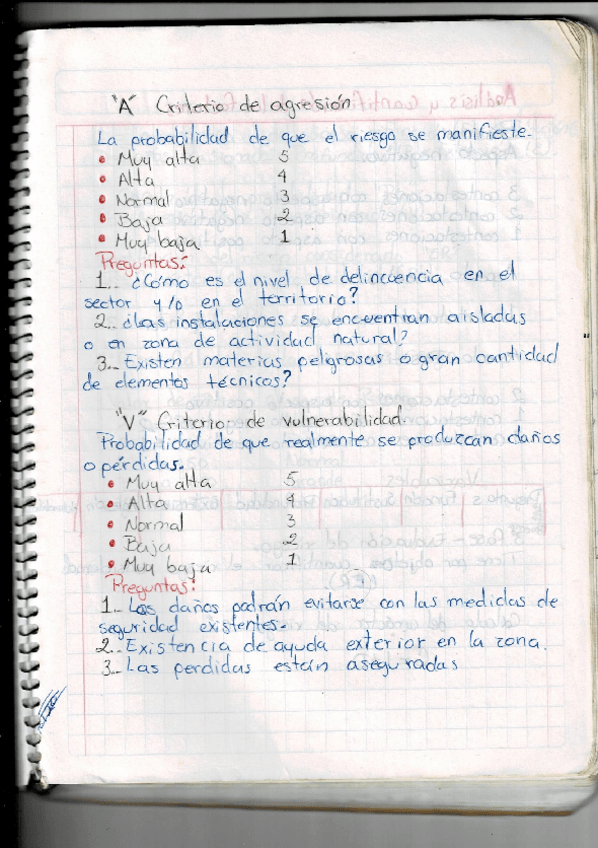 "A" Criterio de agresión
La probabilidad de que el riesgo se manifieste.
• Muy alta 5
• Alta 4
• Normal 3
• Baja 2
• Muy baja 1
Preguntas:
1.. ¿Cómo es el nivel de delincuencia en el
sector y/o en el territorio?
2.. ¿Las instalaciones se encuentran aisladas
o en zona de actividad natural?
3.. Existen materias peligrosas o gran cantidad
de elementos técnicos?
"V" Criterio de vulnerabilidad.
Probabilidad de que realmente se produzcan daños
o pérdidas.
• Muy alta 5
• Alta 4
• Normal 3
• Baja 2
• Muy baja 1
Preguntas:
1.. Los daños podrán evitarse con las medidas de
seguridad existentes.
2.. Existencia de ayuda exterior en la zona.
3.. Las perdidas están aseguradas